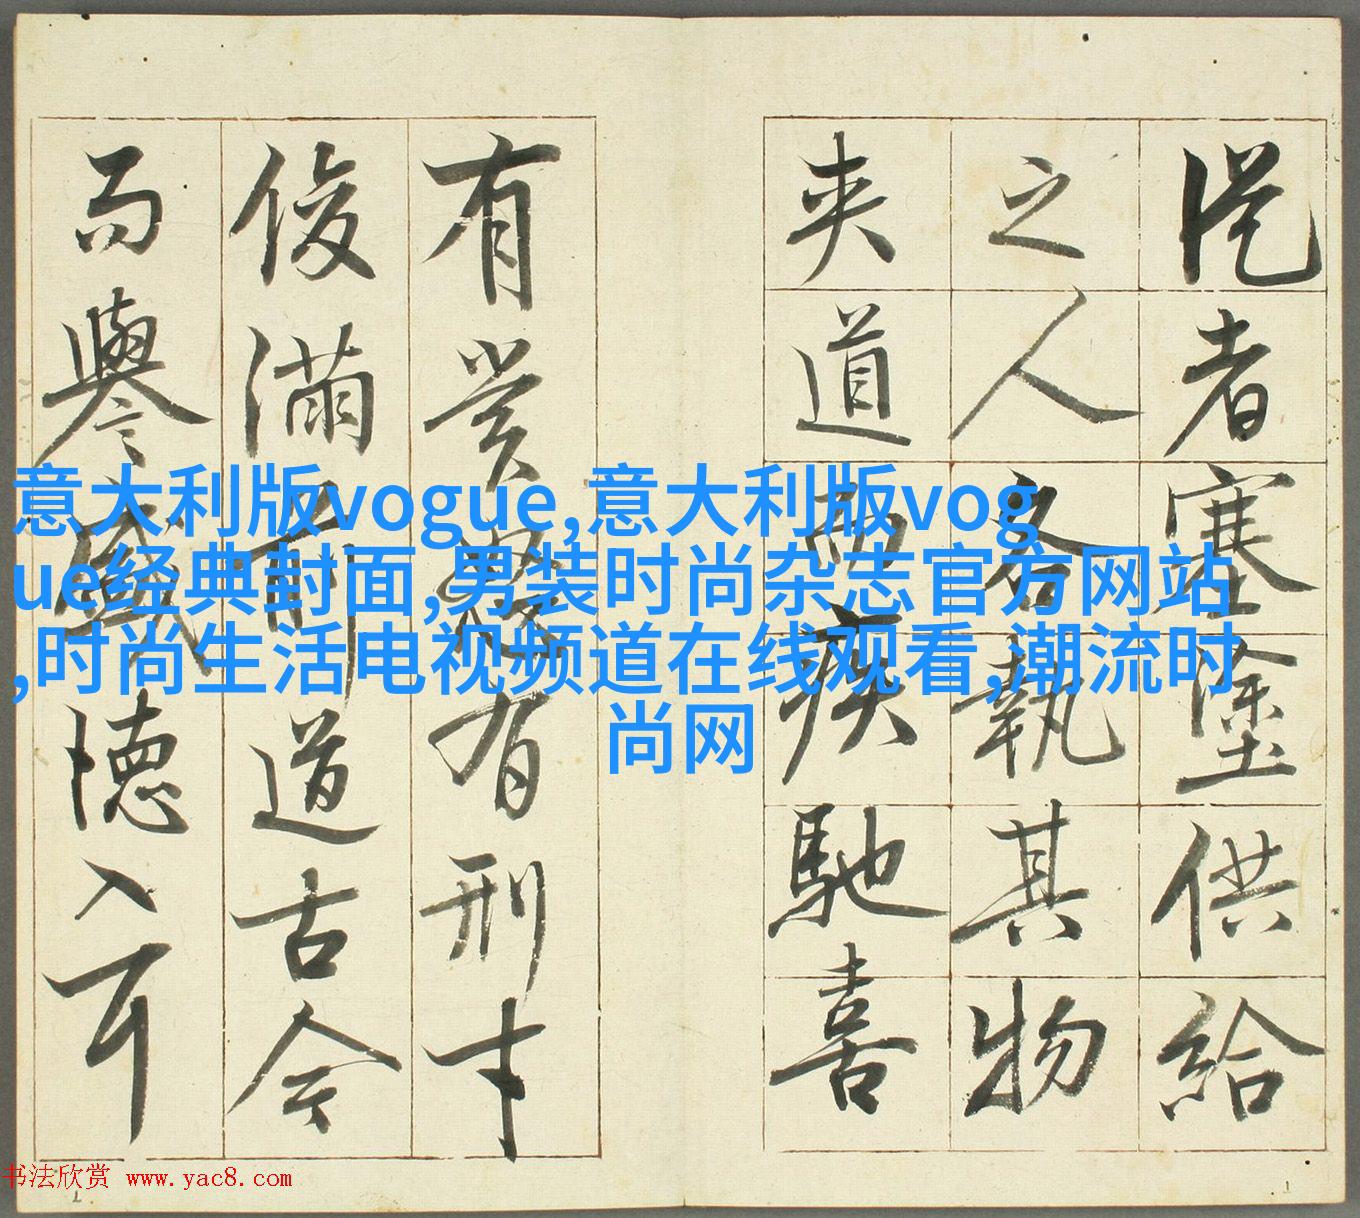 從者塞塗供給
之人各執其物
夾道而疾馳喜
有賞怒有刑才
俊滿前道古今
而譽盛德入耳
意大利版vogue,意大利版vog
ue经典封面,男装时尚杂志官方网站
,时尚生活电视频道在线观看,潮流时
尚网
书法欣赏 www.yac8.com